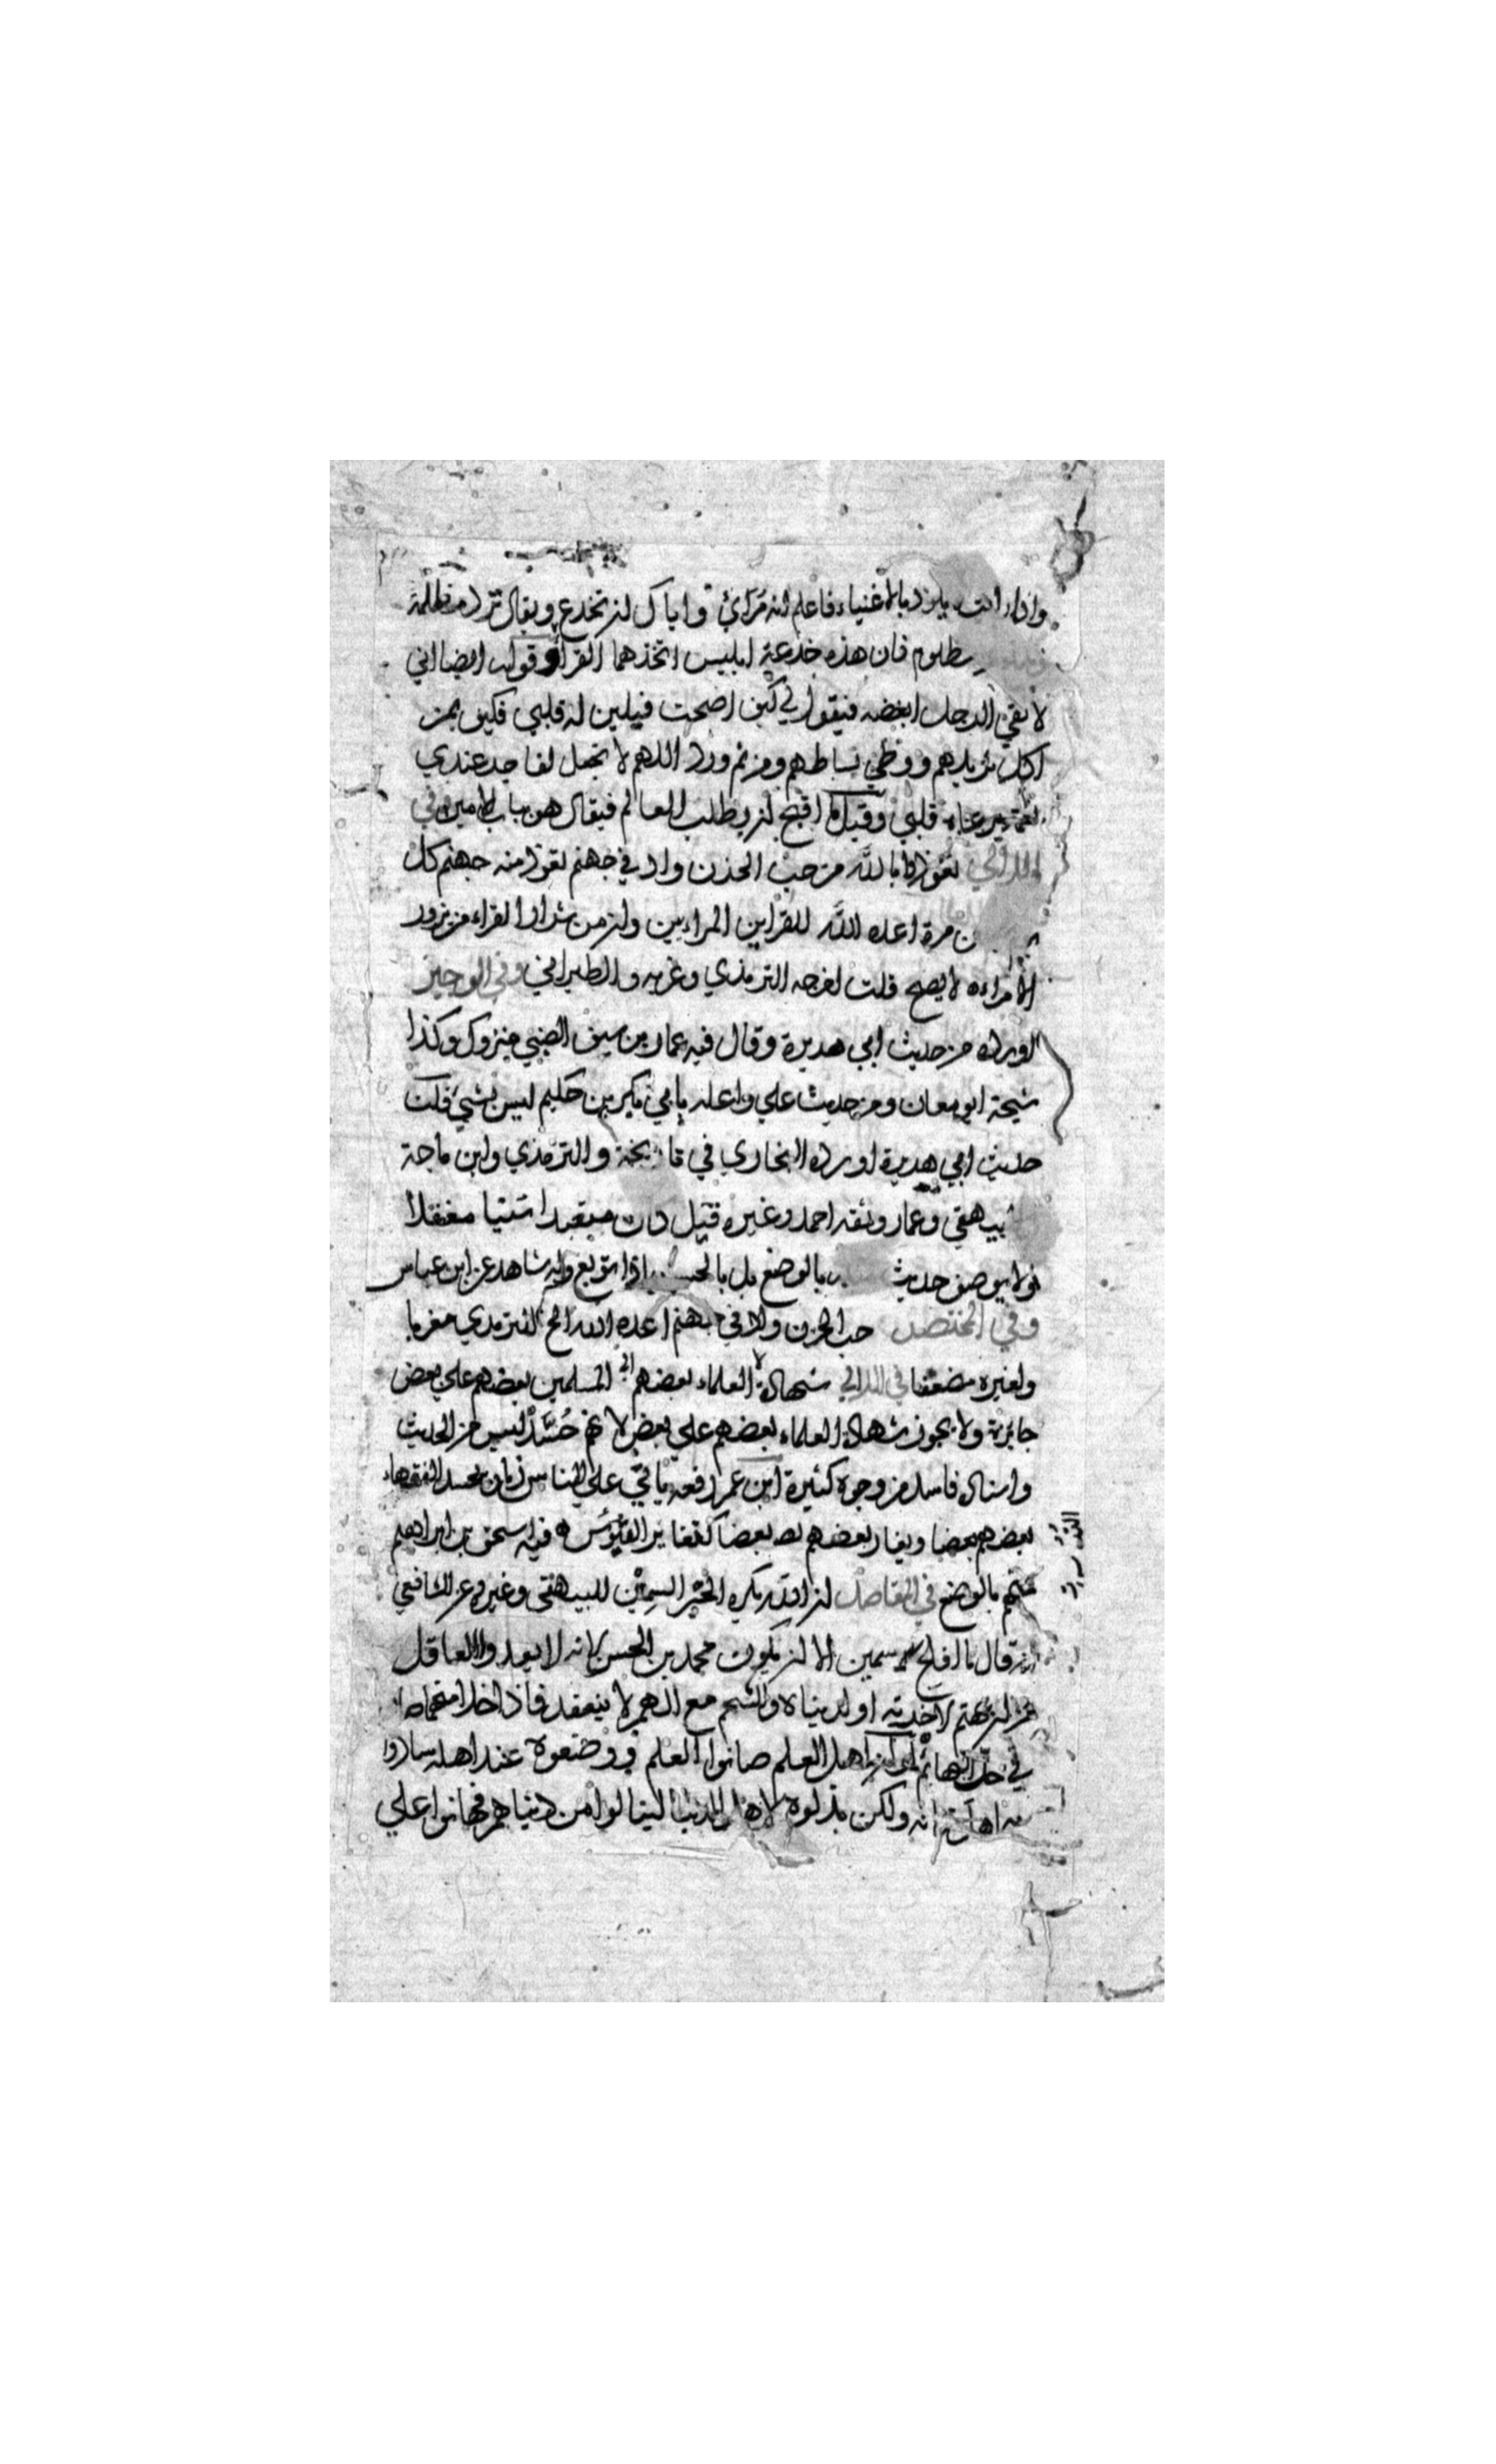 واذا رايته يلوذ بالاغنياء فاعلم انه مرائي واياك ان تخدع ويقال ترد مظلمة
مظلوم فان هذه خدعة ابليس اتخذها القراء وقوله ايضا اني
لا لقي الرجل ابغضه فيقول لي كيف اصبحت فيلين له قلبي فكيف بمن
اكل ثريدهم ووطي بساطهم ومن ثم ورد اللهم لا تجعل لفاجر عندي
نعمة يرعاه قلبي وقيل ما اقبح ان يطلب العالم فيقال هو بباب الامير في
اللالي تعوذوا بالله من جب الحزن واد في جهنم تعوذ منه جهنم كل
مرة اعده الله للقراين المراءيين وان من شرار القراء من يزور
الامراءه لا يصح قلت اخرجه الترمذي وغربه والطبراني وفي الوجيز
اورده من حديث ابي هريرة وقال فيه عمار بن سيف الضبي متروك وكذا
شيخه ابو معان ومن حديث علي واعله بابي بكير بن حكيم ليس بشيء قلت
حديث ابي هريرة اورده البخاري في تاريخه والترمذي وابن ماجة
بيهقي وعمار وثقه احمد وغيره قيل كان متعبدا متنبا مغفلا
ولا يوصف حديث بالوضع بل بالحسن اذا توبع وله شاهد عن ابن عباس
وفي المختصر جب الحزن واد في جهنم اعده الله الخ للترمذي مغربا
ولغيره مضعفا في اللالي شهادة العلماء بعضهم المسلمين بعضهم علي بعض
جايزة ولا يجوز شهادة العلماء بعضهم علي بعض لانهم حُسَّد ليس من الحديث
واسناده فاسد من وجوه كثيرة ابن عمر رفعه ياتي علي الناس زمان يحسد الفقهاء
بعضهم بعضا ويغار بعضهم بعضا كتغاير التيوس ه فيه اسحق بن ابراهيم
متهم بالوضع في المقاصد ان الله يكره الحبر السمين للبيهقي وغيره عن الشافعي
انه قال ما افلح سمين الا ان يكون محمد بن الحسن لانه لا يعدو العاقل
من ان يهتم لاخرته او لدنياه والشحم مع الهم لا ينعقد فاذا خلا منهما صار
في حد البهائم لو ان اهل العلم صانوا العلم ووضعوه عند اهله سادوا
به اهل زمانه ولكن بذلوه لاهل الدنيا لينالوا من دنياهم فهانوا علي